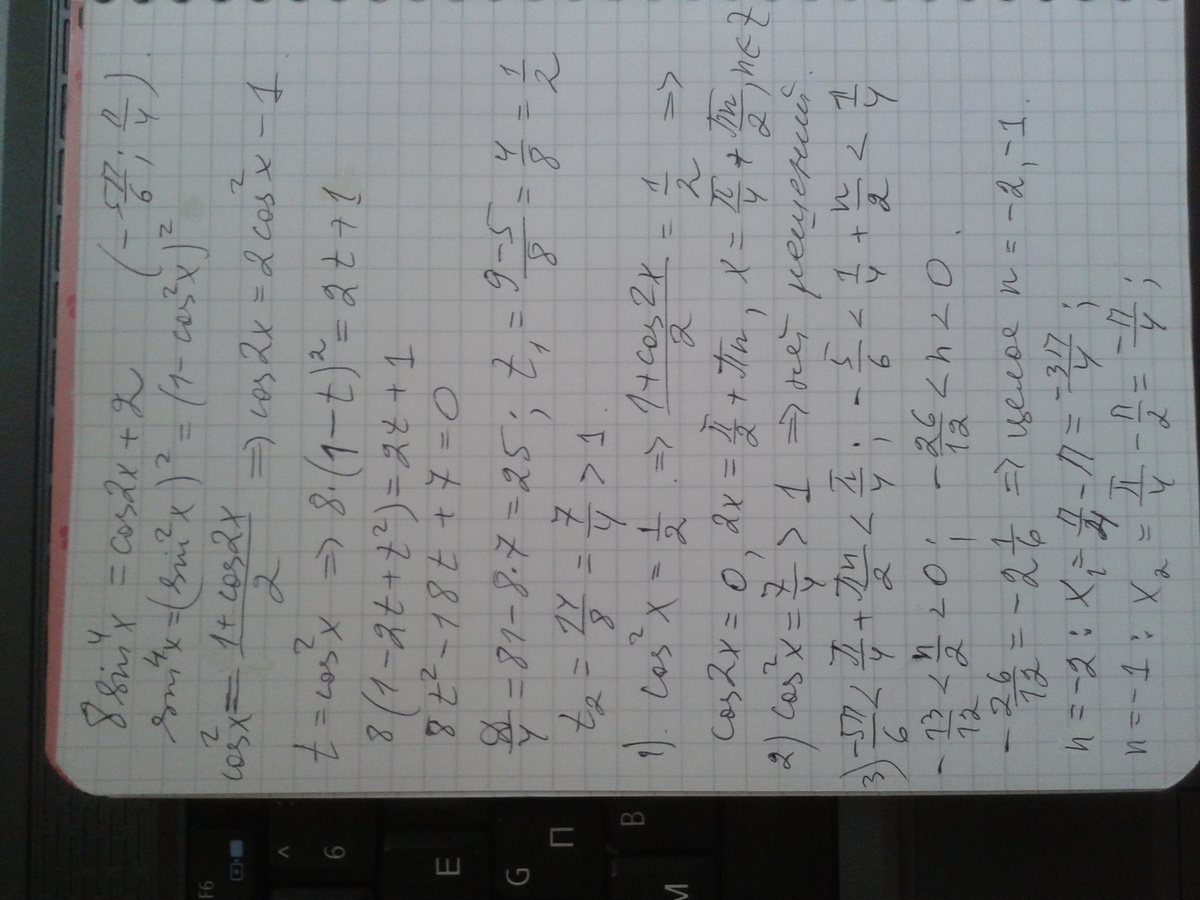 8 sin⁴x = cos2x + 2 (-5π/6; π/4).
sin⁴x = (sin²x)² = (1 - cos²x)²
cos²x = (1 + cos2x)/2 ⇒ cos2x = 2cos²x - 1
t = cos²x ⇒ 8·(1 - t)² = 2t + 1
8(1 - 2t + t²) = 2t + 1
8t² - 18t + 7 = 0
D/4 = 81 - 8·7 = 25; t₁ = (9 - 5)/8 = 4/8 = 1/2
t₂ = 14/8 = 7/4 > 1.
1). cos²x = 1/2. ⇒ (1 + cos2x)/2 = 1/2 ⇒
cos2x = 0, 2x = π/2 + πn, x = π/4 + πn/2, n∈Z
2) cos²x = 7/4 > 1 ⇒ нет решений.
3) -5π/6 < π/4 + πn/2 < π/4; -5/6 < 1/4 + n/2 < 1/4
-13/12 < n/2 < 0; -26/12 < n < 0.
-26/12 = -2 1/6 ⇒ целое n = -2, -1.
n = -2: x₁ = π/4 - π = -3π/4;
n = -1: x₂ = π/4 - π/2 = -π/4;
F6
^
6
E
G
П
B
M